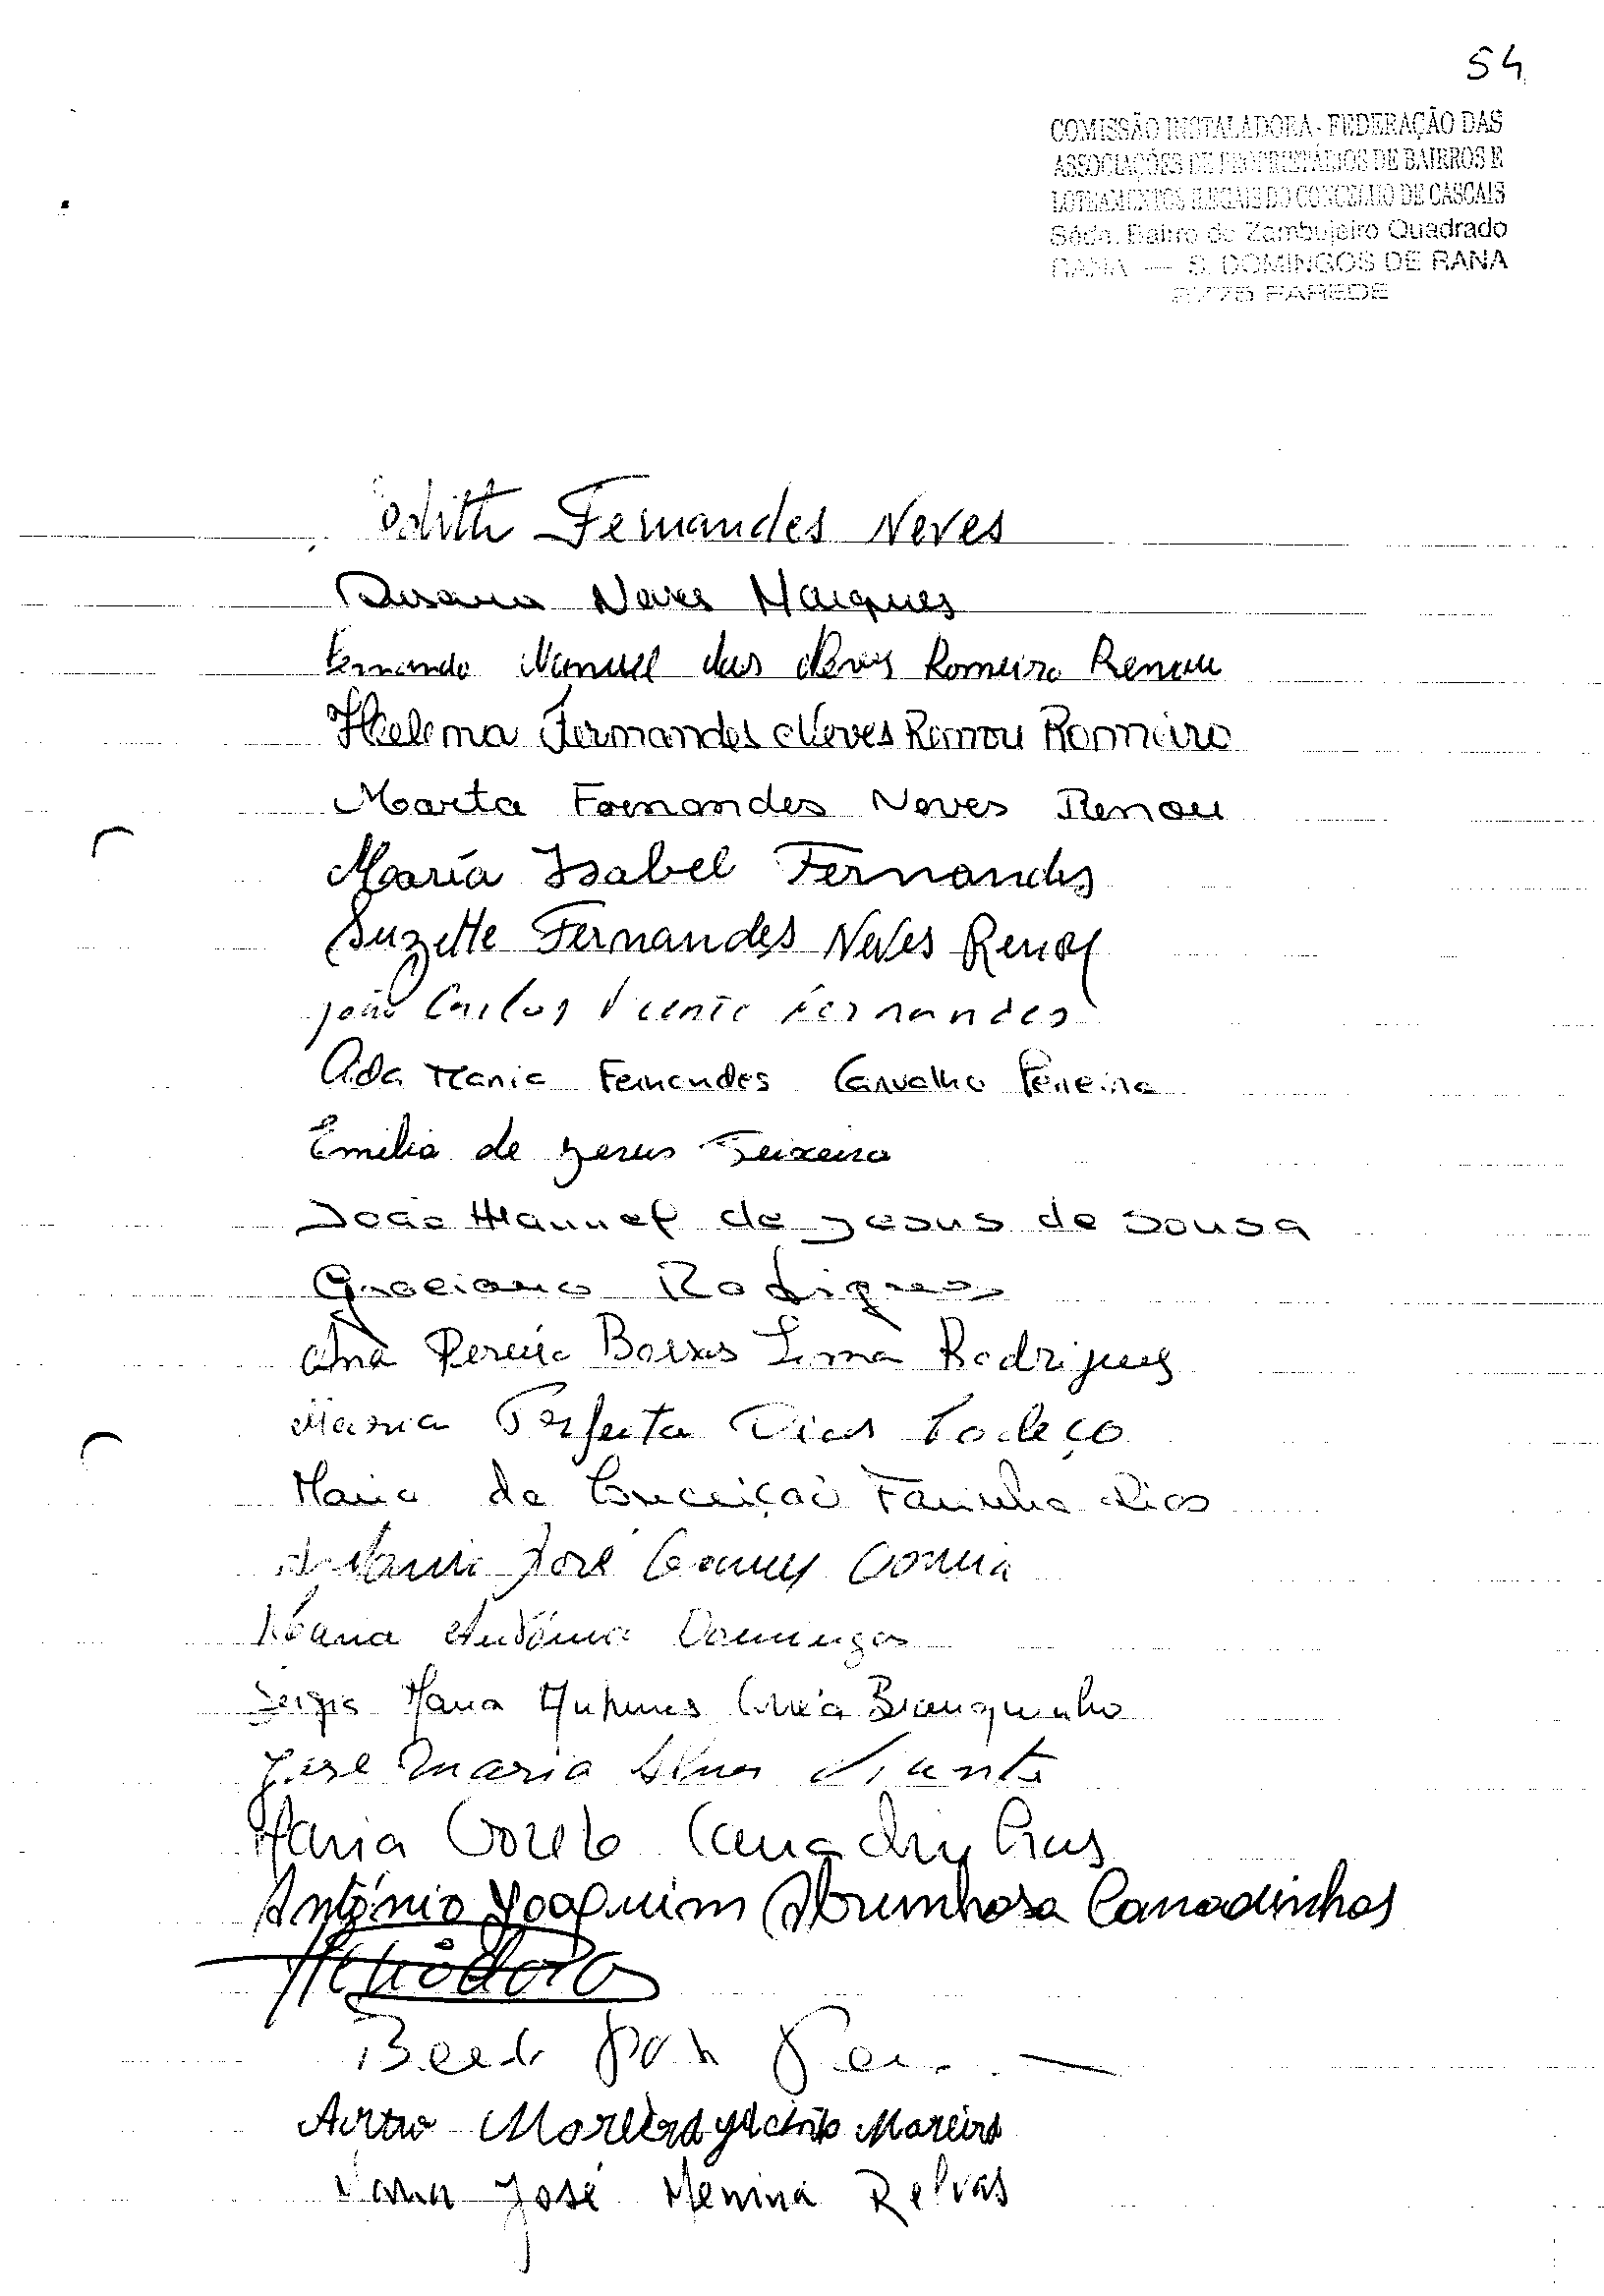 54
COMISSÃO INSTALADORA - FEDERAÇÃO DAS
ASSOCIAÇÕES DE PROPRIETÁRIOS DE BAIRROS E
LOTEAMENTOS ILEGAIS DO CONCELHO DE CASCAIS
Séde. Bairro do Zambujeiro Quadrado
RANA — S. DOMINGOS DE RANA
2775 PAREDE
Edith Fernandes Neves
Neves Marques
Fernando Manuel das Neves Romeiro Renou
Helena Fernandes Neves Renou Romeiro
Marta Fernandes Neves Renou
María Isabel Fernandes
Suzette Fernandes Neves Renou
João Carlos Vicente Fernandes
Aida Maria Fernandes Carvalho Pereira
Emilia de Jesus Teixeira
João Manuel de Jesus de Sousa
Graciano Rodrigues
Ana Pereira Lima Rodrigues
Maria Perfeita Dias
Maria da Conceição Farinha Dias
António José Gomes Correia
Maria António Domingos
Sergio Maria Antunes Correia Branquinho
José Maria Alves
Maria Canadinhas
António Joaquim Abrunhosa Canadinhas
Moreira Jacinto Moreira
Maria José Menina Relvas